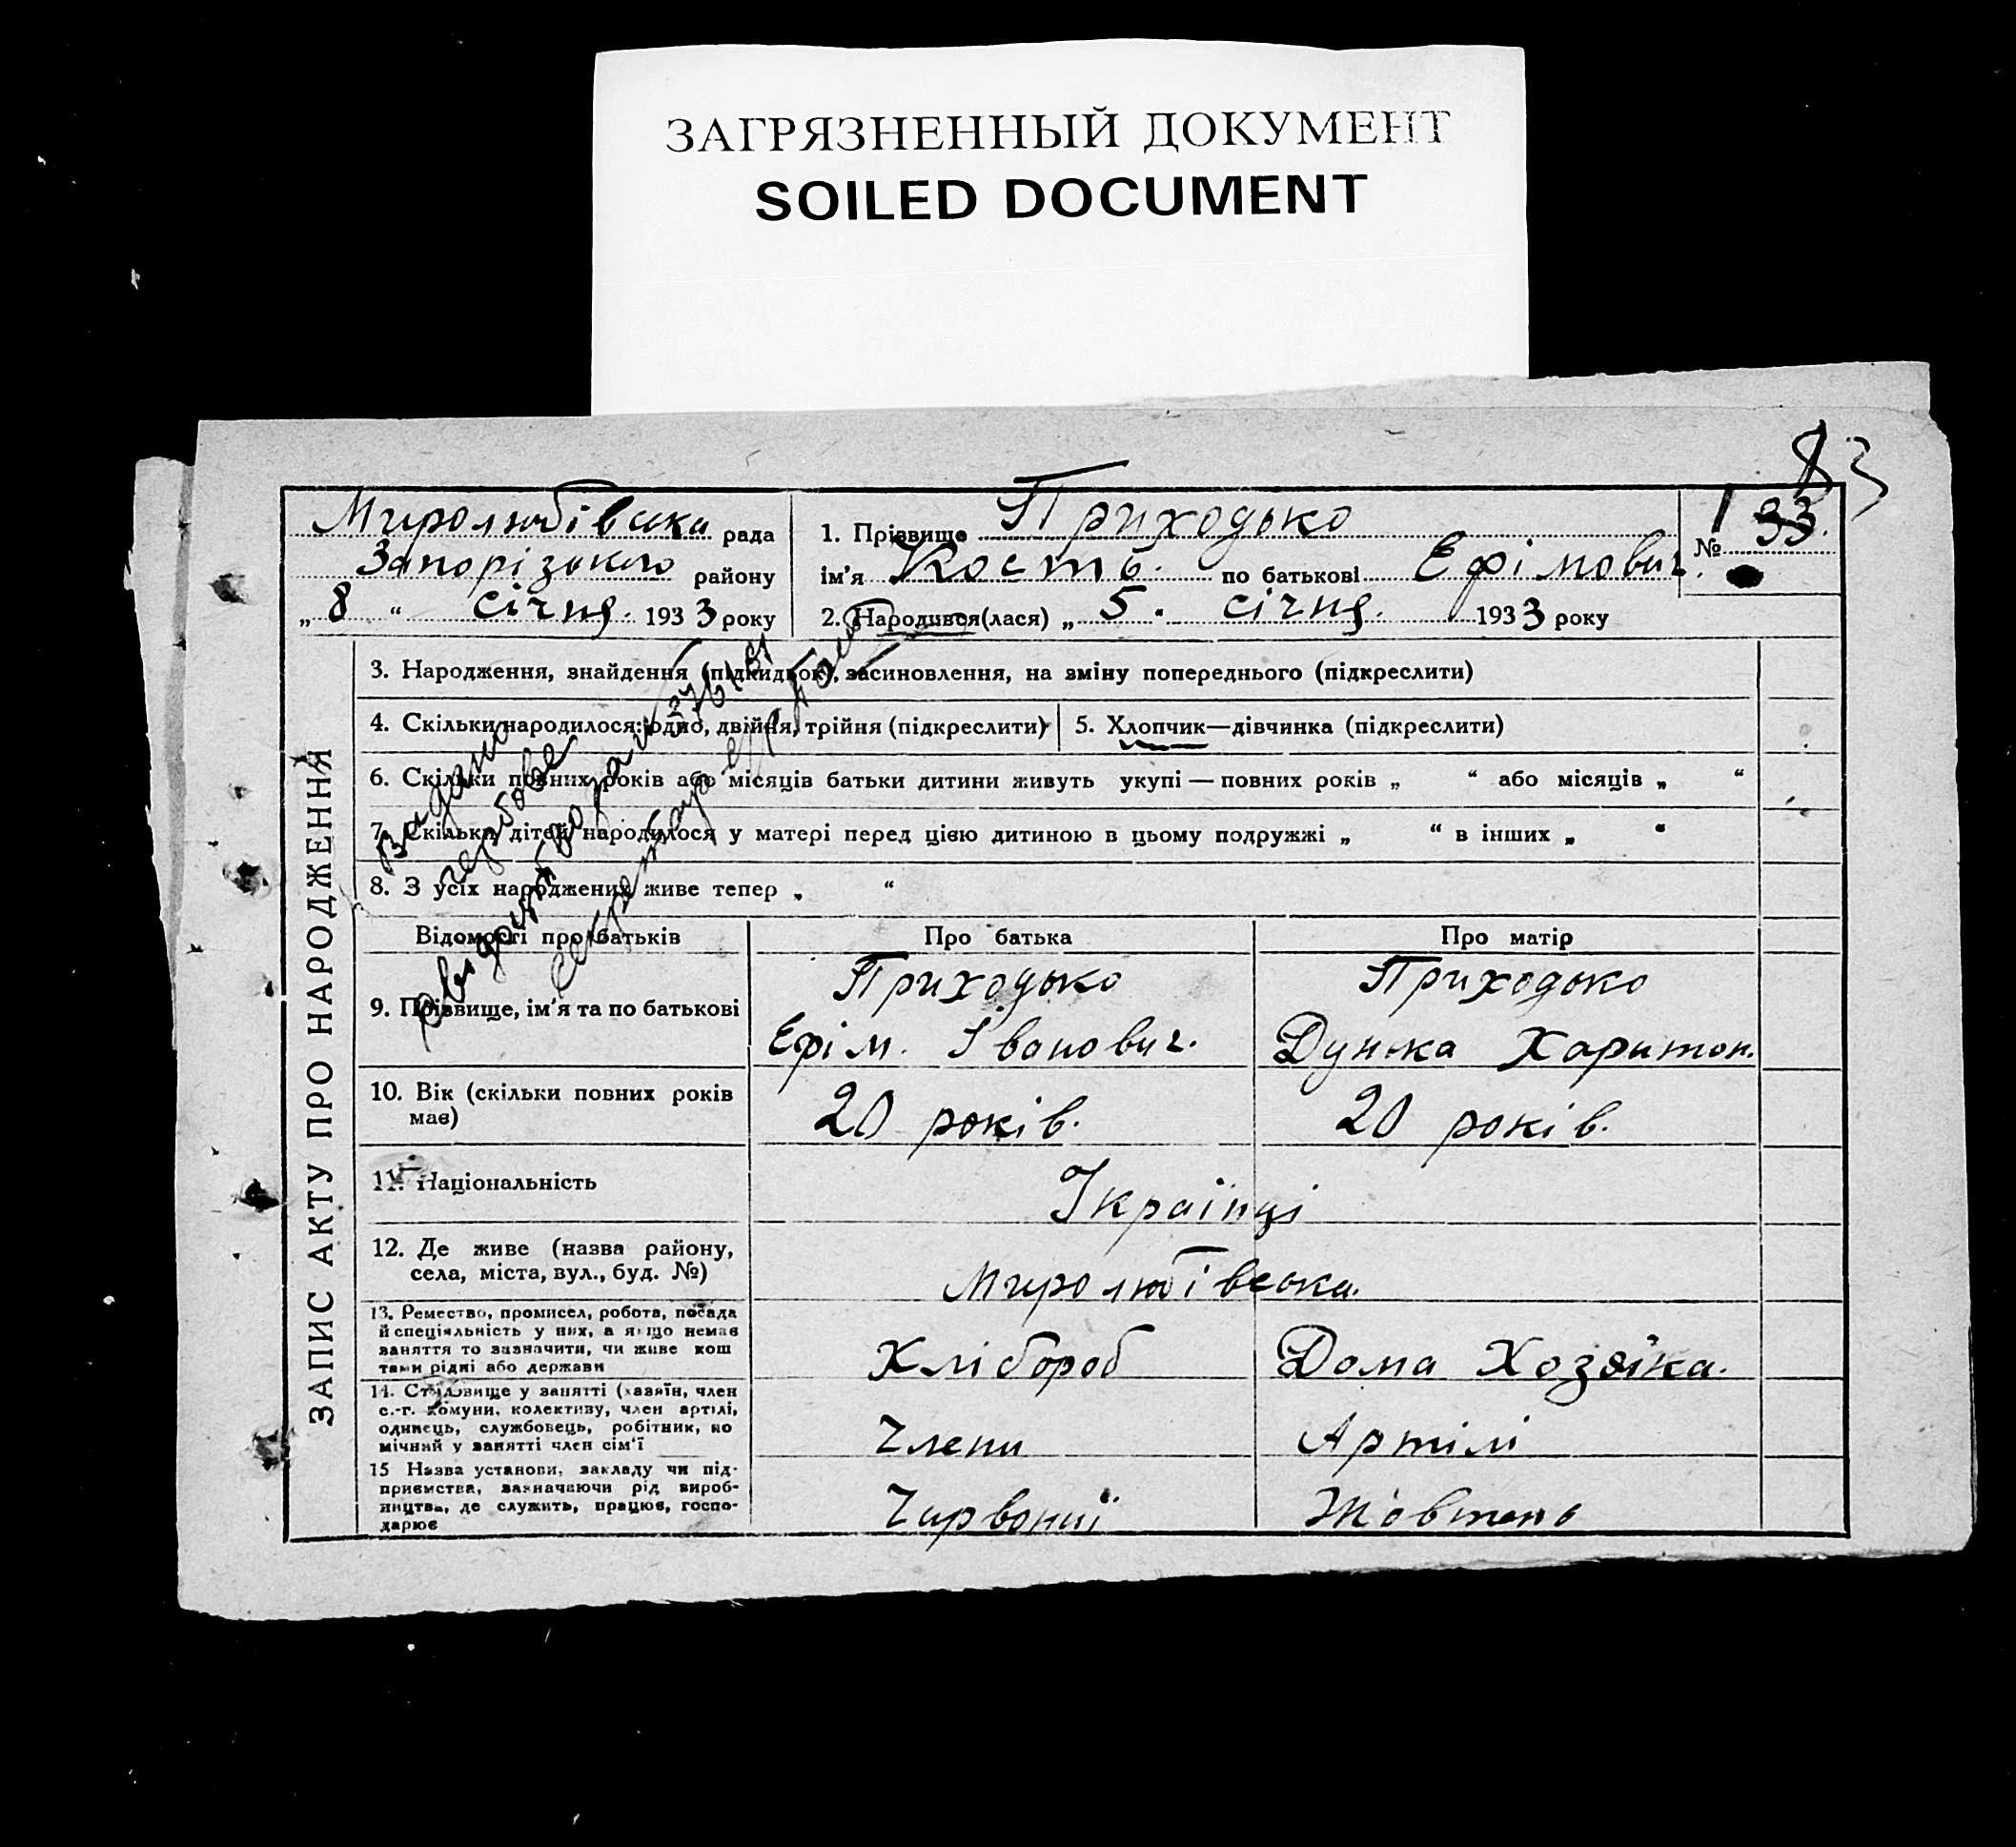 ЗАГРЯЗНЕННЫЙ ДОКУМЕНТ
SOILED DOCUMENT
83
Миролюбівська рада
Запорізького району
„8“ січня. 1933 року
1. Прізвище Приходько
ім’я Кость. по батькові Ефімович.
2. Народився(лася) „5. січня. 1933 року
№ 1 33.
ЗАПИС АКТУ ПРО НАРОДЖЕННЯ
3. Народження, знайдення (підкидьок), засиновлення, на зміну попереднього (підкреслити)
4. Скільки народилося: одно, двійня, трійня (підкреслити)
5. Хлопчик—дівчинка (підкреслити)
6. Скільки повних років або місяців батьки дитини живуть укупі — повних років „ “ або місяців „ “
7. Скільки дітей народилося у матері перед цією дитиною в цьому подружжі „ “ в інших „ “
8. З усіх народжених живе тепер „ “
Видано
Відомості про батьків
Про батька
Про матір
9. Прізвище, ім’я та по батькові
Приходько
Ефім. Іванович.
Приходько
Дунька Харитон.
10. Вік (скільки повних років
має)
20 років.
20 років.
11. Національність
Українці
12. Де живе (назва району,
села, міста, вул., буд. №)
Миролюбівська.
13. Ремество, промисел, робота, посада
й спеціяльність у них, а якщо немає
заняття то зазначити, чи живе кош
тами рідні або держави
Хлібороб
Дома Хозяїка.
14. Становище у занятті (хазяїн, член
с.-г. комуни, колективу, член артілі,
одинець, службовець, робітник, по
мічний у занятті член сім’ї
Члени
Артілі
15 Назва установи, закладу чи під-
приємства, зазначаючи рід вироб-
ництва, де служить, працює, госпо-
дарює
Чирвоний
Жовтень